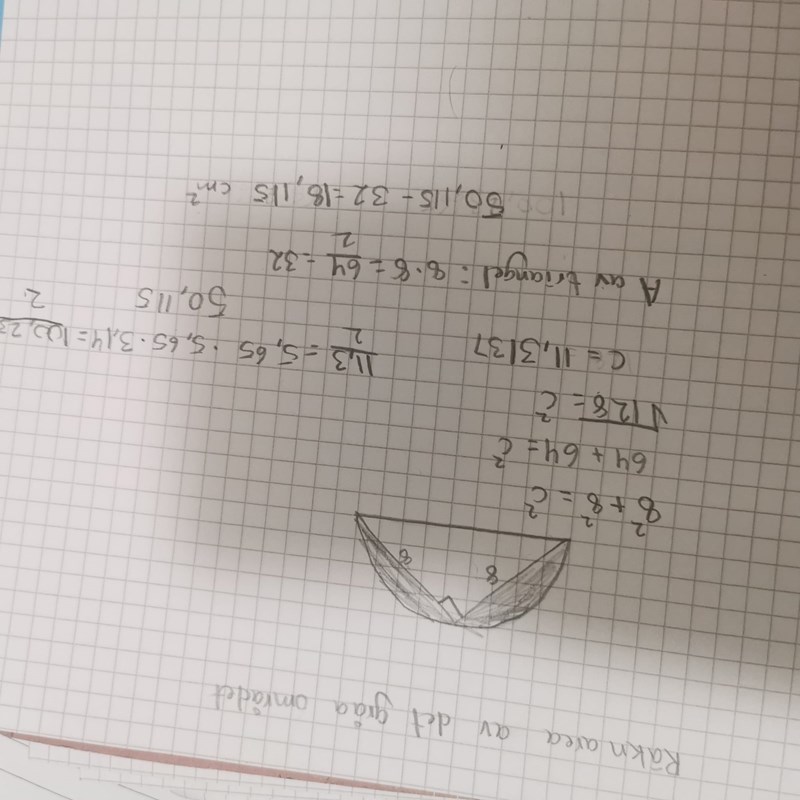 Räkna area av det gråa området
8 8
8² + 8² = c²
64 + 64 = c²
√128 = c²
c = 11,3137
11,3/2 = 5,65 · 5,65 · 3,14 = 100,23/2
50,115
A av triangel: 8·8 = 64/2 = 32
50,115 - 32 = 18,115 cm²